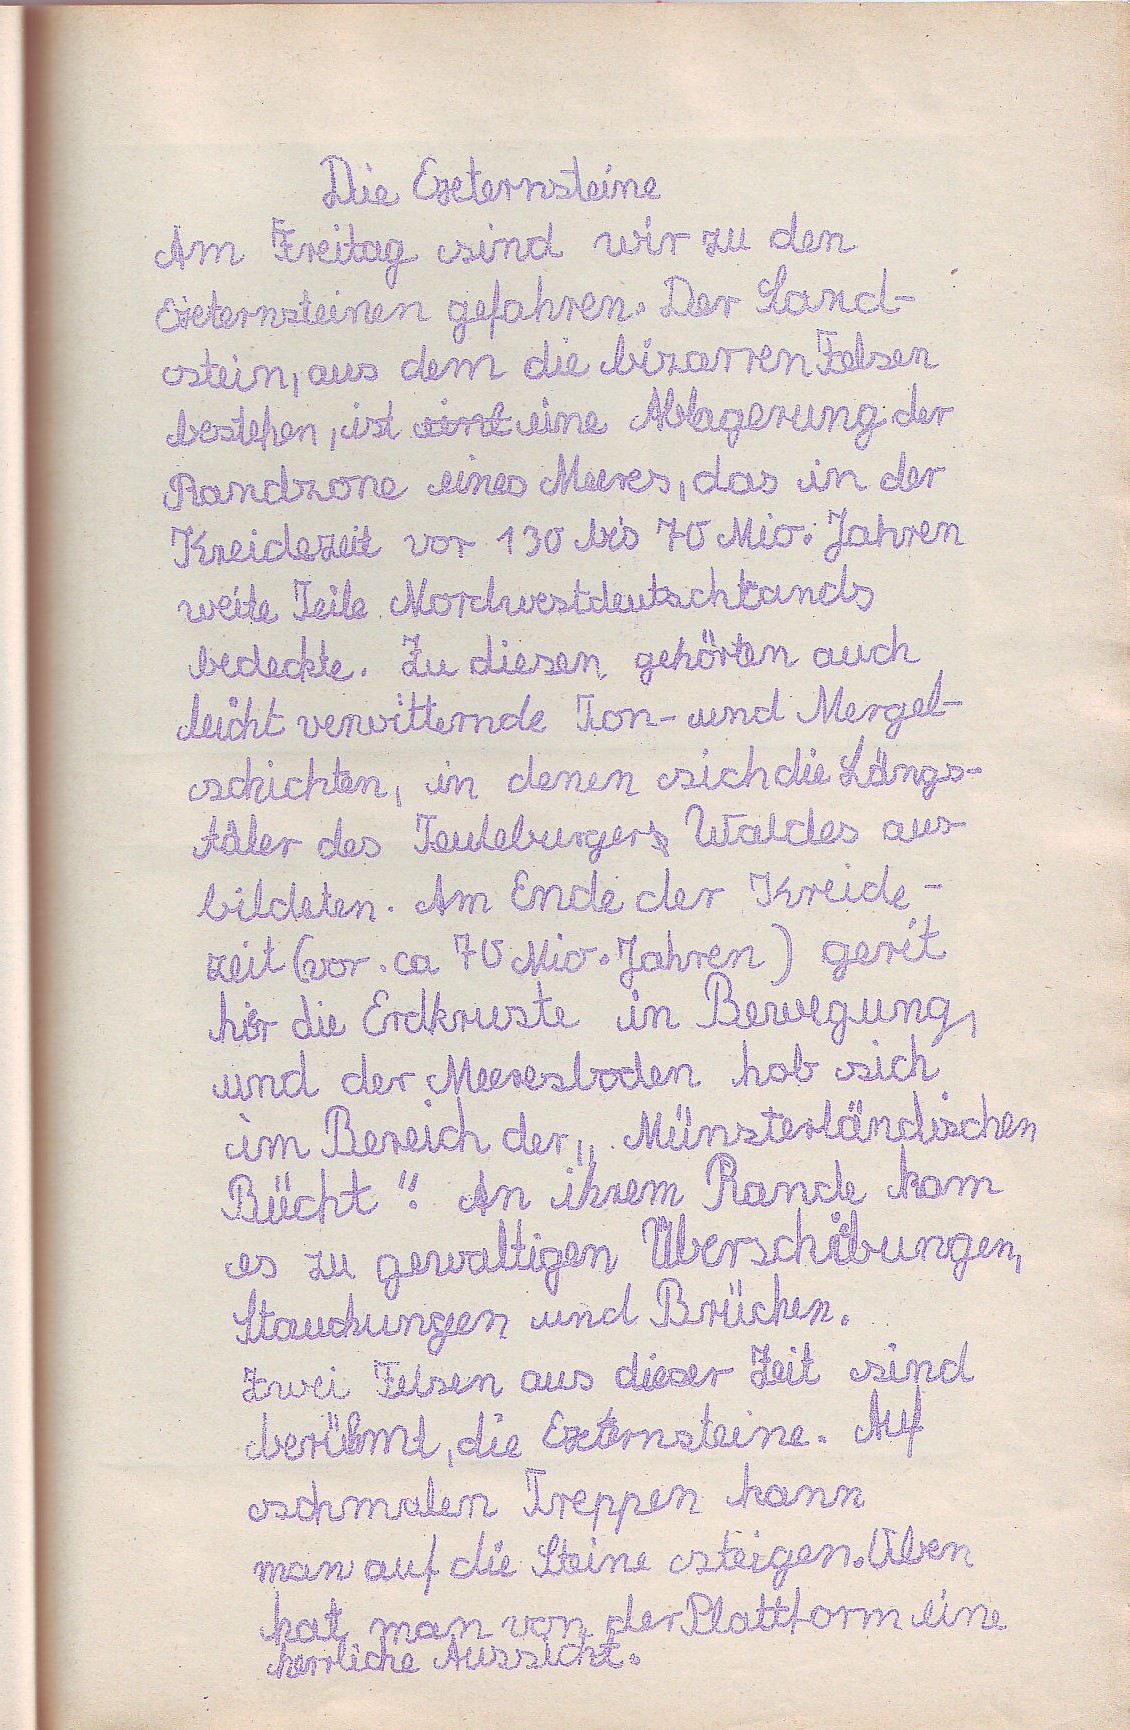 Die Externsteine
Am Freitag sind wir zu den
Externsteinen gefahren. Der Sand-
stein, aus dem die bizarren Felsen
bestehen, ist eine Ablagerung der
Randzone eines Meeres, das in der
Kreidezeit vor 130 bis 70 Mio. Jahren
weite Teile Nordwestdeutschlands
bedeckte. Zu diesen gehörten auch
leicht verwitternde Ton- und Mergel-
schichten, in denen sich die Längs-
täler des Teuteburger Waldes aus
bildeten. Am Ende der Kreide-
zeit (vor. ca 70 Mio. Jahren) gerit
hier die Erdkruste in Bewegung,
und der Meeresboden hob sich
im Bereich der „Münsterländischen
Bücht". An ihrem Rande kam
es zu gewaltigen Überschibungen,
Stauchungen und Brüchen.
Zwei Felsen aus dieser Zeit sind
berühmt, die Externsteine. Auf
schmalen Treppen kann
man auf die Steine steigen. Oben
hat man von der Plattform eine
herrliche Aussicht.